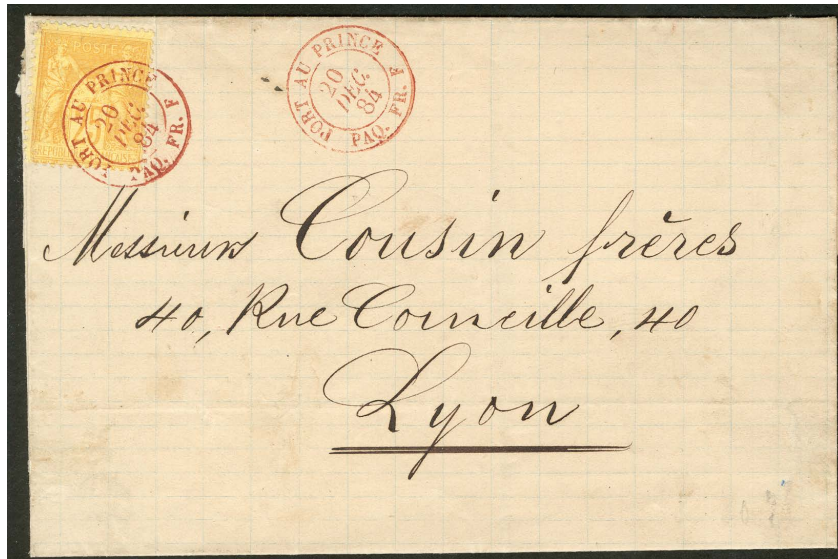 POSTE
25
RÉPUBLIQUE FRANÇAISE
PORT AU PRINCE
20
DEC.
84
PAQ. FR. F
PORT AU PRINCE
20
DEC.
84
PAQ. FR. F
Messieurs Cousin frères
40, Rue Corneille, 40
Lyon